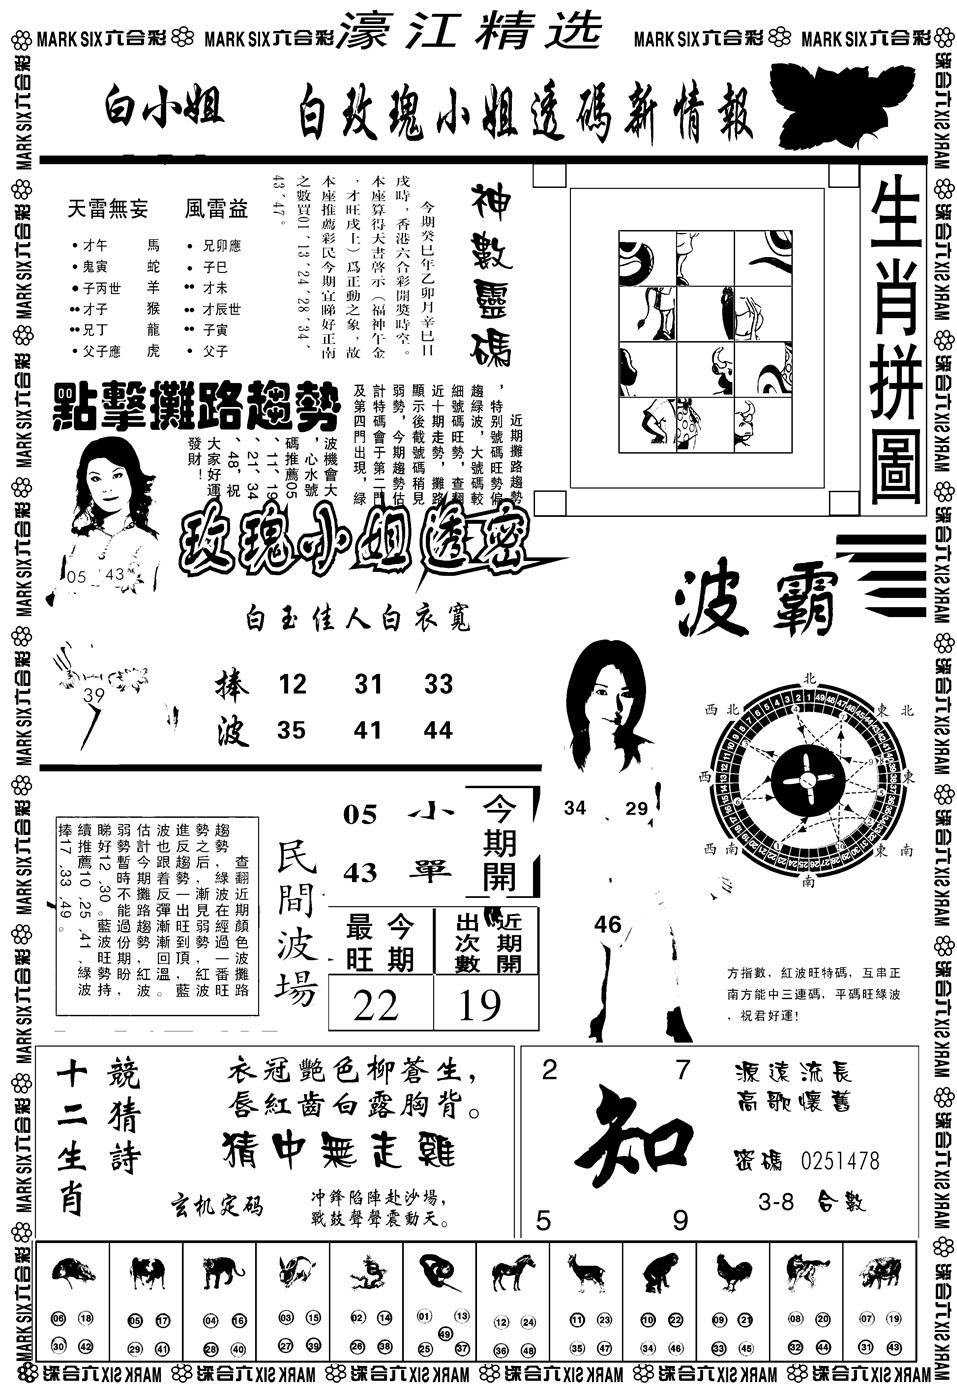 MARK SIX六合彩 MARK SIX六合彩 濠江精选 MARK SIX六合彩 MARK SIX六合彩
白小姐 白玫瑰小姐透碼新情報
天雷無妄 風雷益
才午 馬 兄卯應
鬼寅 蛇 子巳
子丙世 羊 才未
才子 猴 才辰世
兄丁 龍 子寅
父子應 虎 父子
神數靈碼
今期癸巳年乙卯月辛巳日
戌時，香港六合彩開獎時空。
本座算得天書啓示（福神午金
，才旺戌土）爲正動之象，故
本座推薦彩民今期宜睇好正南
之數買01、13、24、28、34、
43、47。
生肖拼圖
點擊攤路趨勢
近期攤路趨勢
，特别號碼旺勢偏
趨綠波，大號碼較
細號碼旺勢，查翻
近十期走勢，攤路
顯示後截號碼稍見
弱勢，今期趨勢估
計特碼會于第二門
及第四門出現，綠
波機會大
，心水號
碼推薦05
、11、19
、21、34
、48，祝
大家好運
發財！
05 43
39
玫瑰小姐透密
白玉佳人白衣寬
捧波
12 31 33
35 41 44
波霸
34 29
46
北
西北 東北
西 東
西南 東南
南
方指數，紅波旺特碼，互串正
南方能中三連碼，平碼旺綠波
，祝君好運!
查翻近期顔色波攤路
趨勢，綠波在經過一番旺
勢之后，漸見弱勢，紅波
進反趨勢一出旺到頂，藍
波也跟着反彈漸漸回溫。
估計今期攤路趨勢，紅波
弱勢暫時不能過份期盼，
睇好12、30。藍波旺勢持
續推薦10、25、41，綠波
捧17、33、49。
民間波場
05 小
43 單
今期開
今期最旺
近期開出次數
22 19
十二生肖
競猜詩
衣冠艷色柳蒼生，
唇紅齒白露胸背。
猜中無走雞
玄机定码
冲鋒陷陣赴沙場，
戰鼓聲聲震動天。
2 7
知
5 9
源遠流長
高歌懷舊
密碼 0251478
3-8 合數
06 18 05 17 04 16 03 15 02 14 01 13 12 24 11 23 10 22 09 21 08 20 07 19
49
30 42 29 41 28 40 27 39 26 38 25 37 36 48 35 47 34 46 33 45 32 44 31 43
MARK SIX六合彩 MARK SIX六合彩 MARK SIX六合彩 MARK SIX六合彩 MARK SIX六合彩